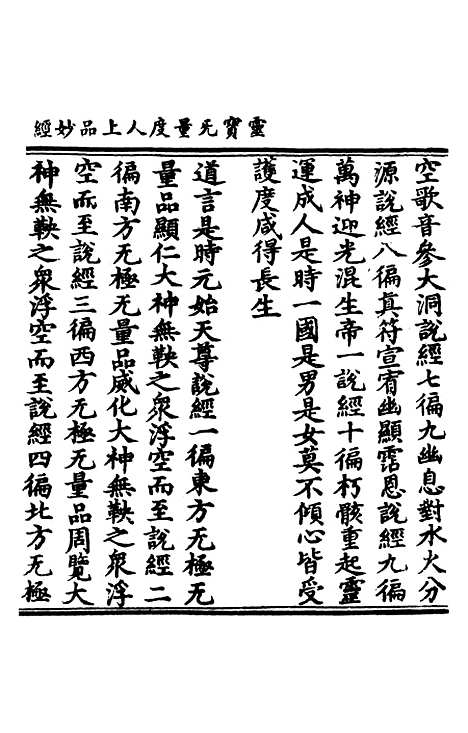 靈寳无量度人上品妙經
空歌音參大洞說經七徧九幽息對水火分
源說經八徧真符宣宥幽顯霑恩說經九徧
萬神迎光混生帝一說經十徧朽骸重起靈
運成人是時一國是男是女莫不傾心皆受
護度咸得長生
道言是時元始天尊說經一徧東方无極无
量品顯仁大神無鞅之衆浮空而至說經二
徧南方无極无量品威化大神無鞅之衆浮
空而至說經三徧西方无極无量品周覽大
神無鞅之衆浮空而至說經四徧北方无極